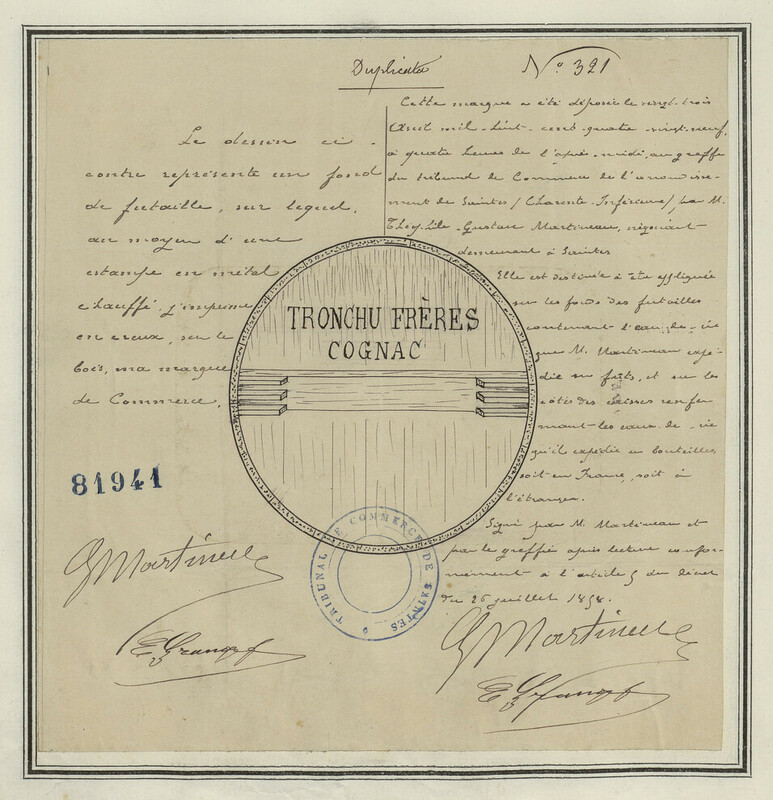 Duplicata
N° 321
Le dessin ci-
contre représente un fond
de futaille, sur lequel,
au moyen d'une
estampe en métal
chauffé, j'imprime
en creux, sur le
bois, ma marque
de Commerce.
Cette marque a été déposée le vingt-trois
Avril mil-huit-cent-quatre-vingt-neuf,
à quatre heures de l'après-midi, au greffe
du tribunal de Commerce de l'arrondisse-
ment de Saintes (Charente Inférieure) par M.
Théophile-Gustave Martineau, négociant
demeurant à Saintes
Elle est destinée à être appliquée
sur les fonds des futailles
contenant l'eau-de-vie
que M. Martineau expé-
die en fûts, et sur les
côtés des caisses renfer-
mant les eaux-de-vie
qu'il expédie en bouteilles
soit en France, soit à
l'étranger.
Signé par M. Martineau et
par le greffier après lecture confor-
mément à l'article 5 du décret
du 26 juillet 1858.
TRONCHU FRÈRES
COGNAC
81941
TRIBUNAL DE COMMERCE DE SAINTES
G Martineau
G Martineau